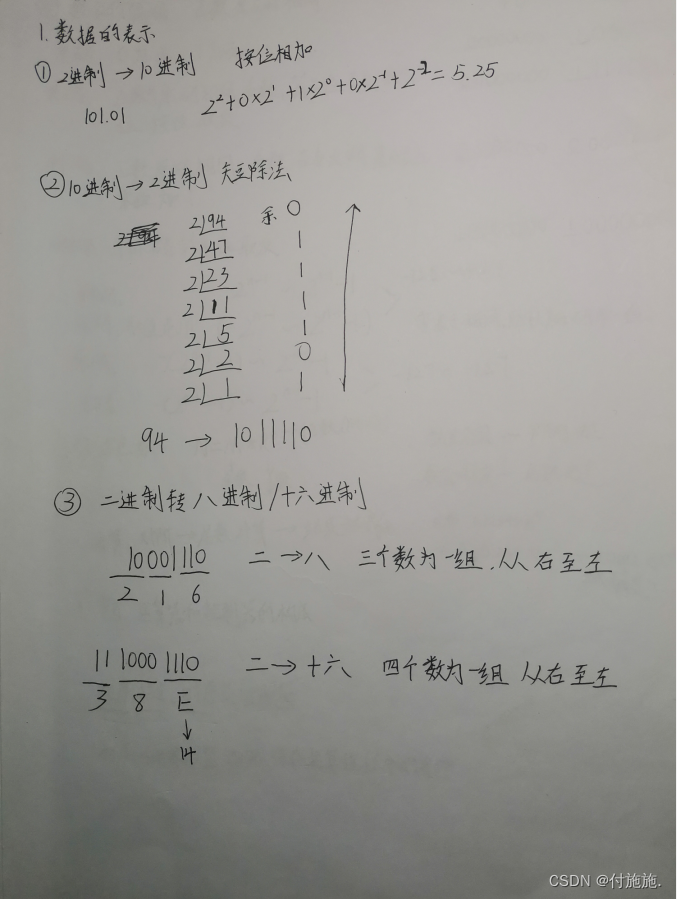 1.数据的表示
① 2进制 → 10进制 按位相加
101.01 2²+0×2¹+1×2⁰+0×2⁻¹+2⁻²=5.25
② 10进制→2进制 短除法
2|94 余 0
2|47 1
2|23 1
2|11 1
2|5 1
2|2 0
2|1 1
94 → 1011110
③ 二进制转八进制/十六进制
10001110 二→八 三个数为一组.从右至左
2 1 6
11 1000 1110 二→十六 四个数为一组 从右至左
3 8 E
↓
14
CSDN @付施施.